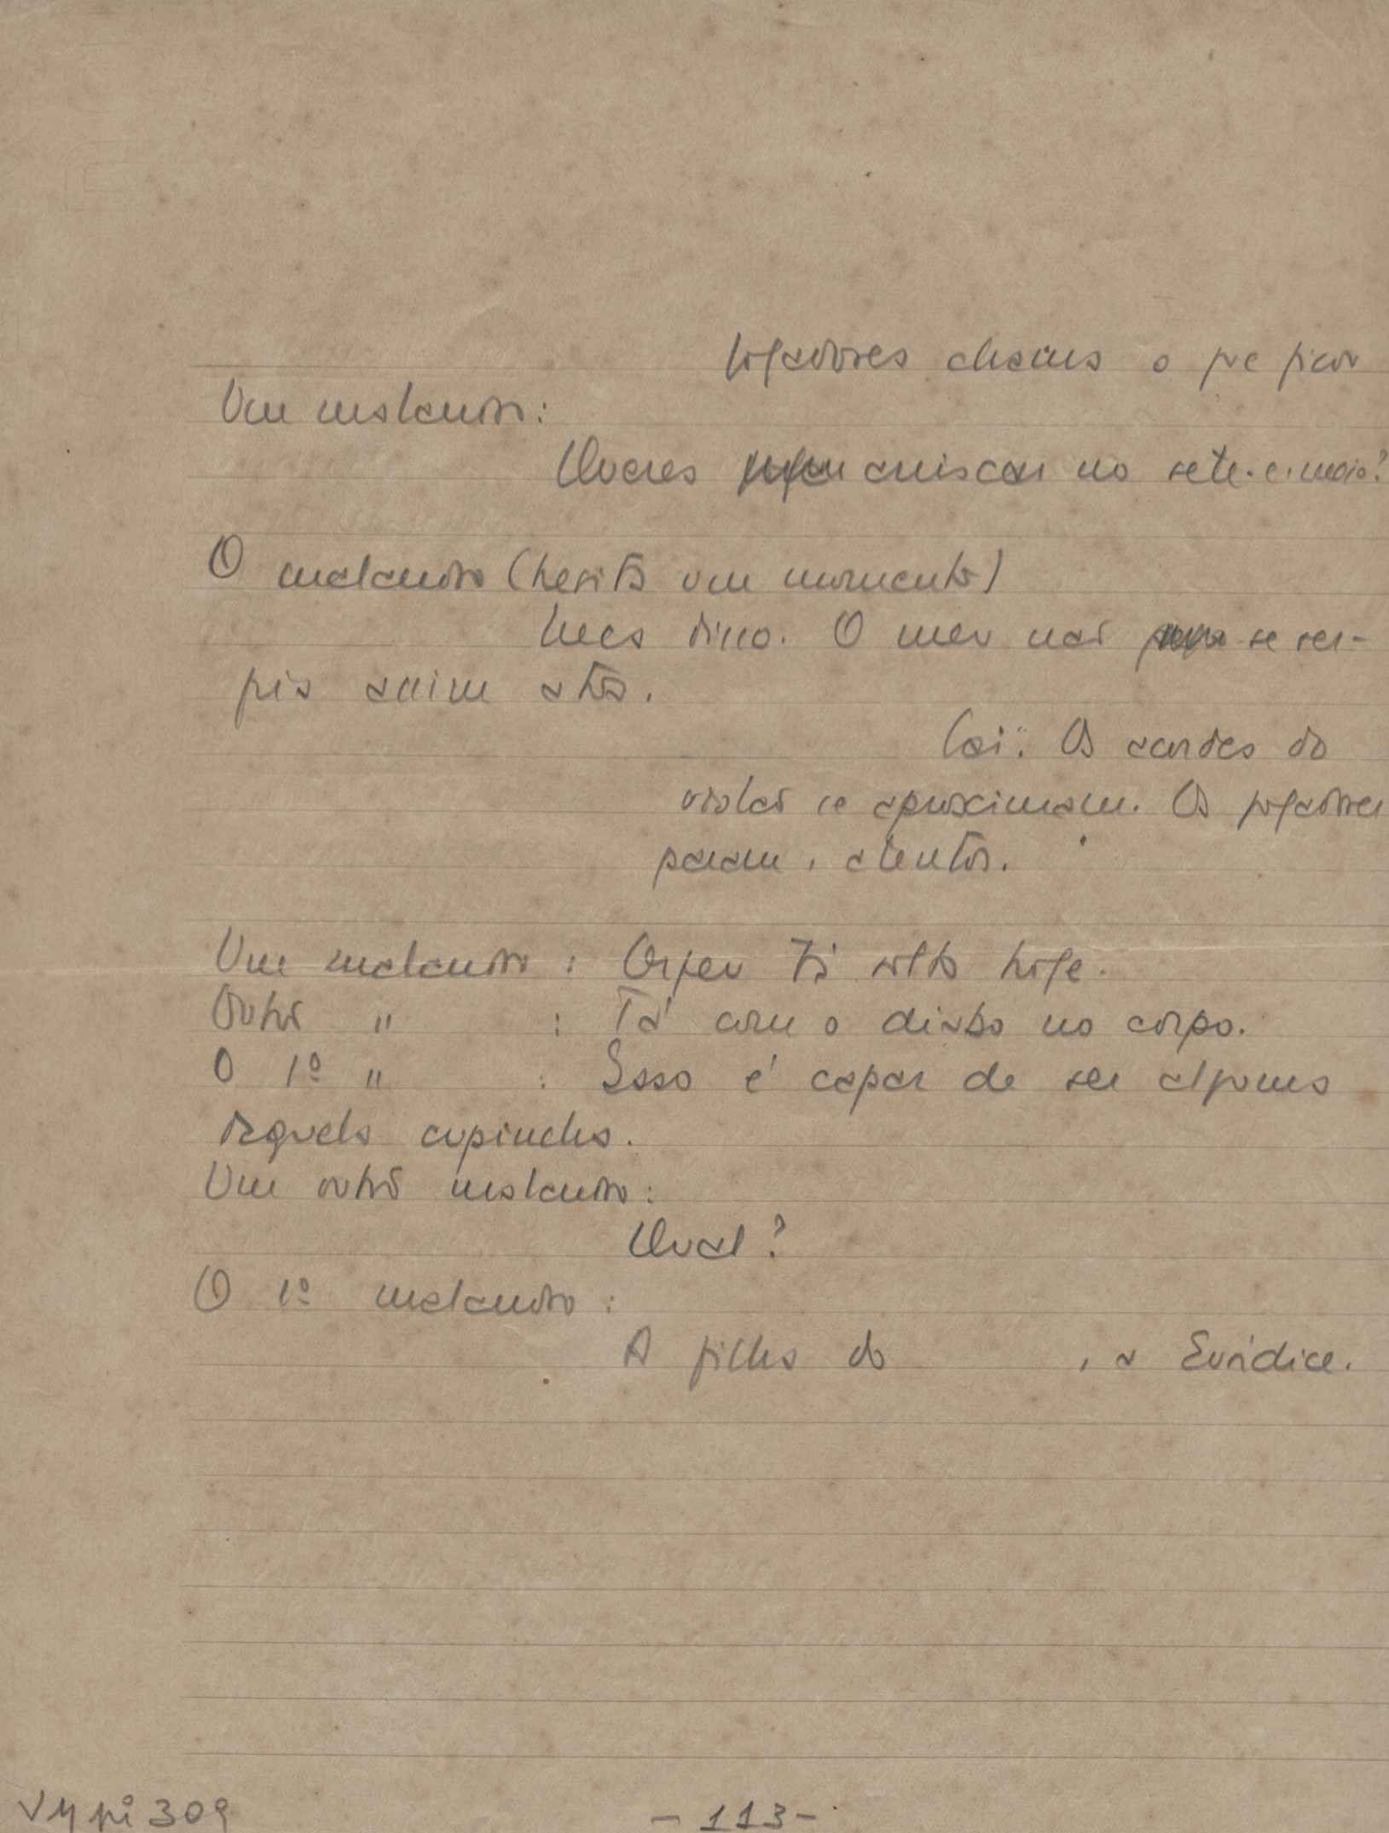 jogadores chama o que ficou
Um malandro:
Queres arriscar no sete-e-meio?
O malandro (hesita um momento)
Mas disso. O meu não se ar-
pia assim atôa.
Sai. Os acordes do
violão se aproximam. Os jogadores
param, atentos.
Um malandro : Orfeu tá solto hoje.
Outro " : Tá com o diabo no corpo.
O 1º " : Isso é capaz de ser alguma
daquela cupincha.
Um outro malandro:
Qual?
O 1º malandro :
A filha do , a Eurídice.
VM pi 309
- 113 -